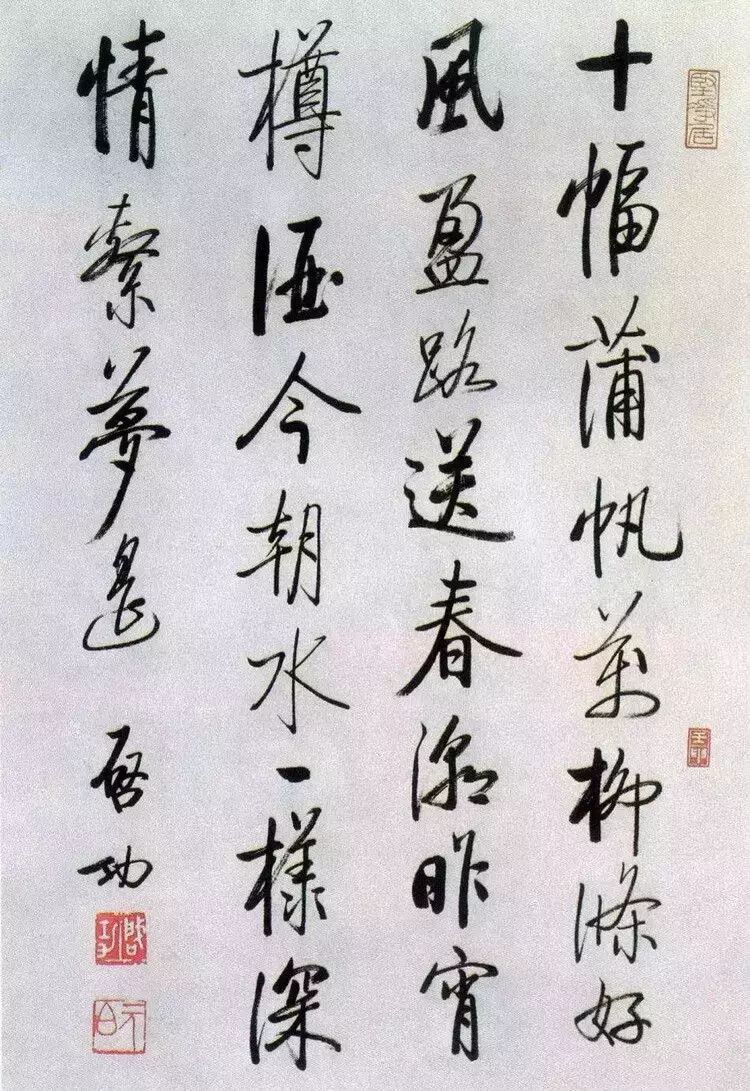 十幅蒲帆萬柳條好
風盈路送春潮昨宵
樽酒今朝水一樣深
情繫夢遙 啓功
啓功
元白